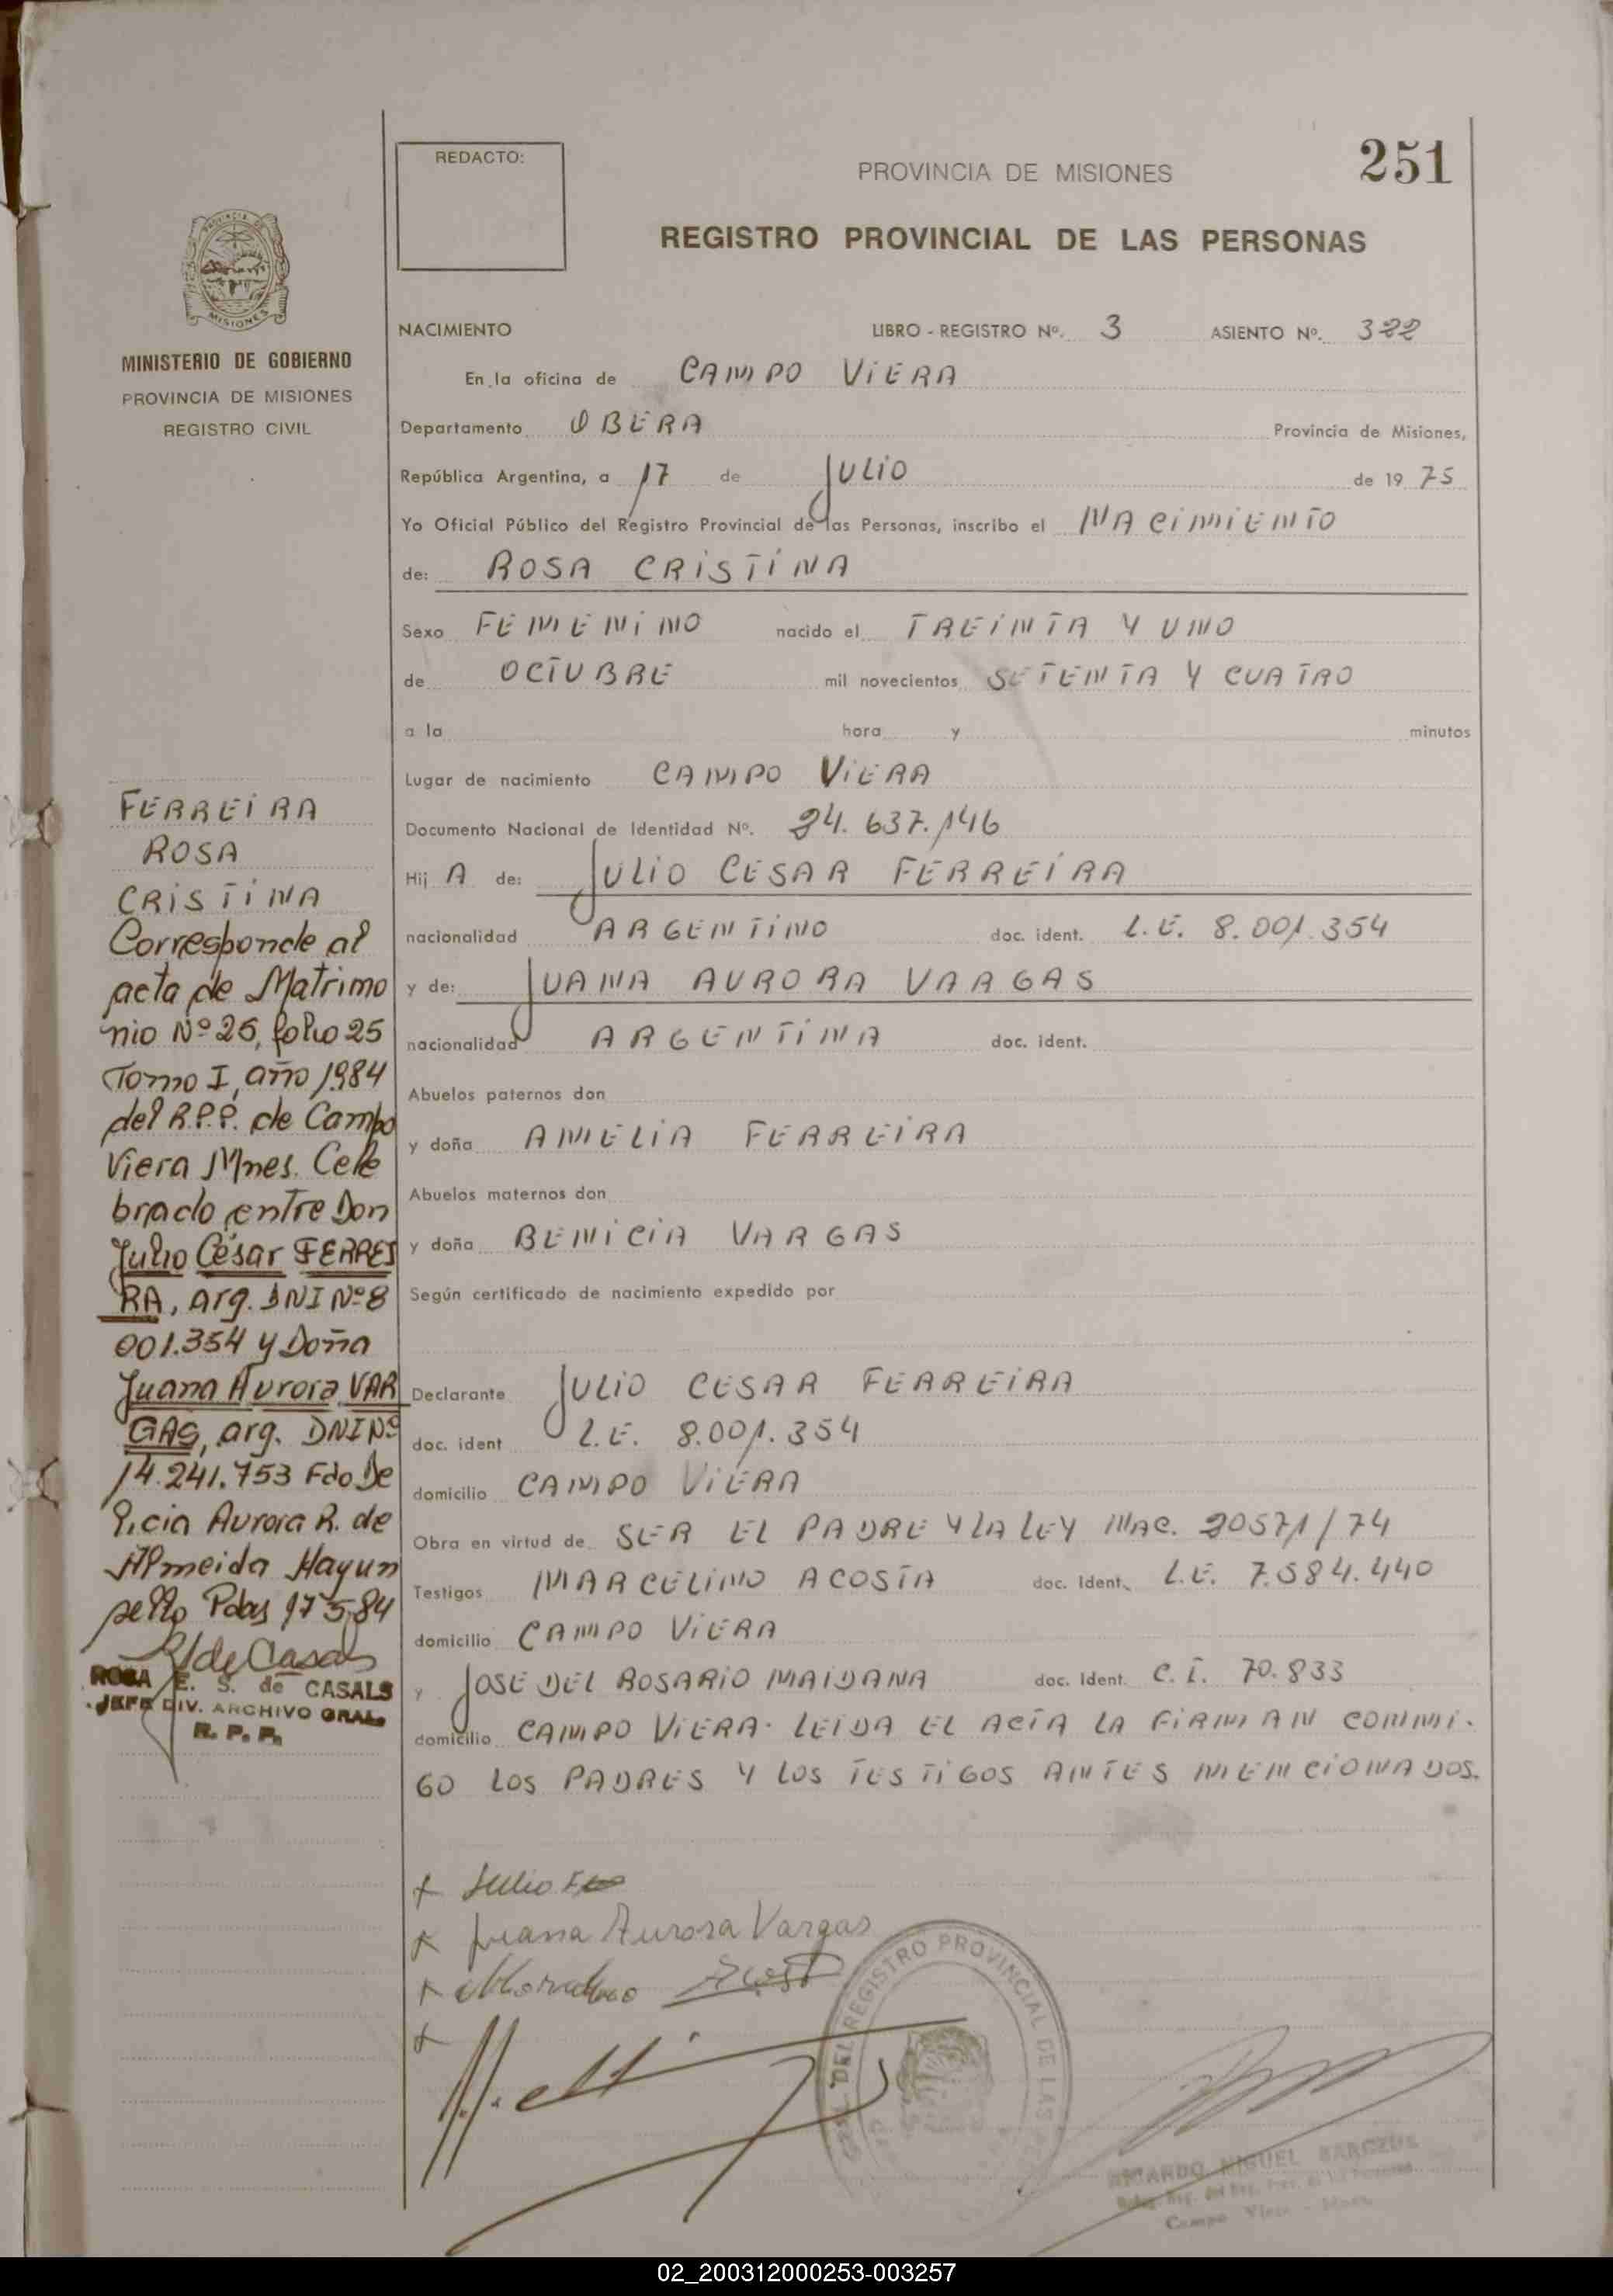 REDACTO:
PROVINCIA DE MISIONES
251
REGISTRO PROVINCIAL DE LAS PERSONAS
PROVINCIA DE
MISIONES
MINISTERIO DE GOBIERNO
PROVINCIA DE MISIONES
REGISTRO CIVIL
NACIMIENTO LIBRO - REGISTRO Nº. 3 ASIENTO Nº. 322
En la oficina de CAMPO VIERA
Departamento OBERA Provincia de Misiones,
República Argentina, a 17 de JULIO de 19 75
Yo Oficial Público del Registro Provincial de las Personas, inscribo el NACIMIENTO
de: ROSA CRISTINA
Sexo FEMENINO nacido el TREINTA Y UNO
de OCTUBRE mil novecientos SETENTA Y CUATRO
a la hora y minutos
Lugar de nacimiento CAMPO VIERA
Documento Nacional de Identidad Nº. 24.637.146
Hij A de: JULIO CESAR FERREIRA
nacionalidad ARGENTINO doc. ident. L.E. 8.001.354
y de: JUANA AURORA VARGAS
nacionalidad ARGENTINA doc. ident.
Abuelos paternos don
y doña AMELIA FERREIRA
Abuelos maternos don
y doña BENICIA VARGAS
Según certificado de nacimiento expedido por
Declarante JULIO CESAR FERREIRA
doc. ident L.E. 8.001.354
domicilio CAMPO VIERA
Obra en virtud de SER EL PADRE Y LA LEY NAC. 20571/74
Testigos MARCELINO ACOSTA doc. Ident. L.E. 7.584.440
domicilio CAMPO VIERA
y JOSE DEL ROSARIO MAIDANA doc. Ident. C.I. 70.833
domicilio CAMPO VIERA. LEIDA EL ACTA LA FIRMAN CONMI-
GO LOS PADRES Y LOS TESTIGOS ANTES MENCIONADOS.
FERREIRA
ROSA
CRISTINA
Corresponde al
acta de Matrimo
nio Nº 25, folio 25
Tomo I, año 1984
del R.P.P. de Campo
Viera Mnes. Cele
brado entre Don
Julio César FERREI
RA, arg. DNI Nº 8
001.354 y Doña
Juana Aurora VAR
GAS, arg. DNI Nº
14.241.753 Fdo De
licia Aurora R. de
Almeida Hay un
sello Pdas 17 5 84
R de Casals
ROSA E. S. de CASALS
JEFE DIV. ARCHIVO GRAL.
R. P. P.
x Julio
x Juana Aurora Vargas
x Marcelino Acosta
x
DEL REGISTRO PROVINCIAL DE LAS
MIGUEL
Campo Viera - Mnes.
02_200312000253-003257